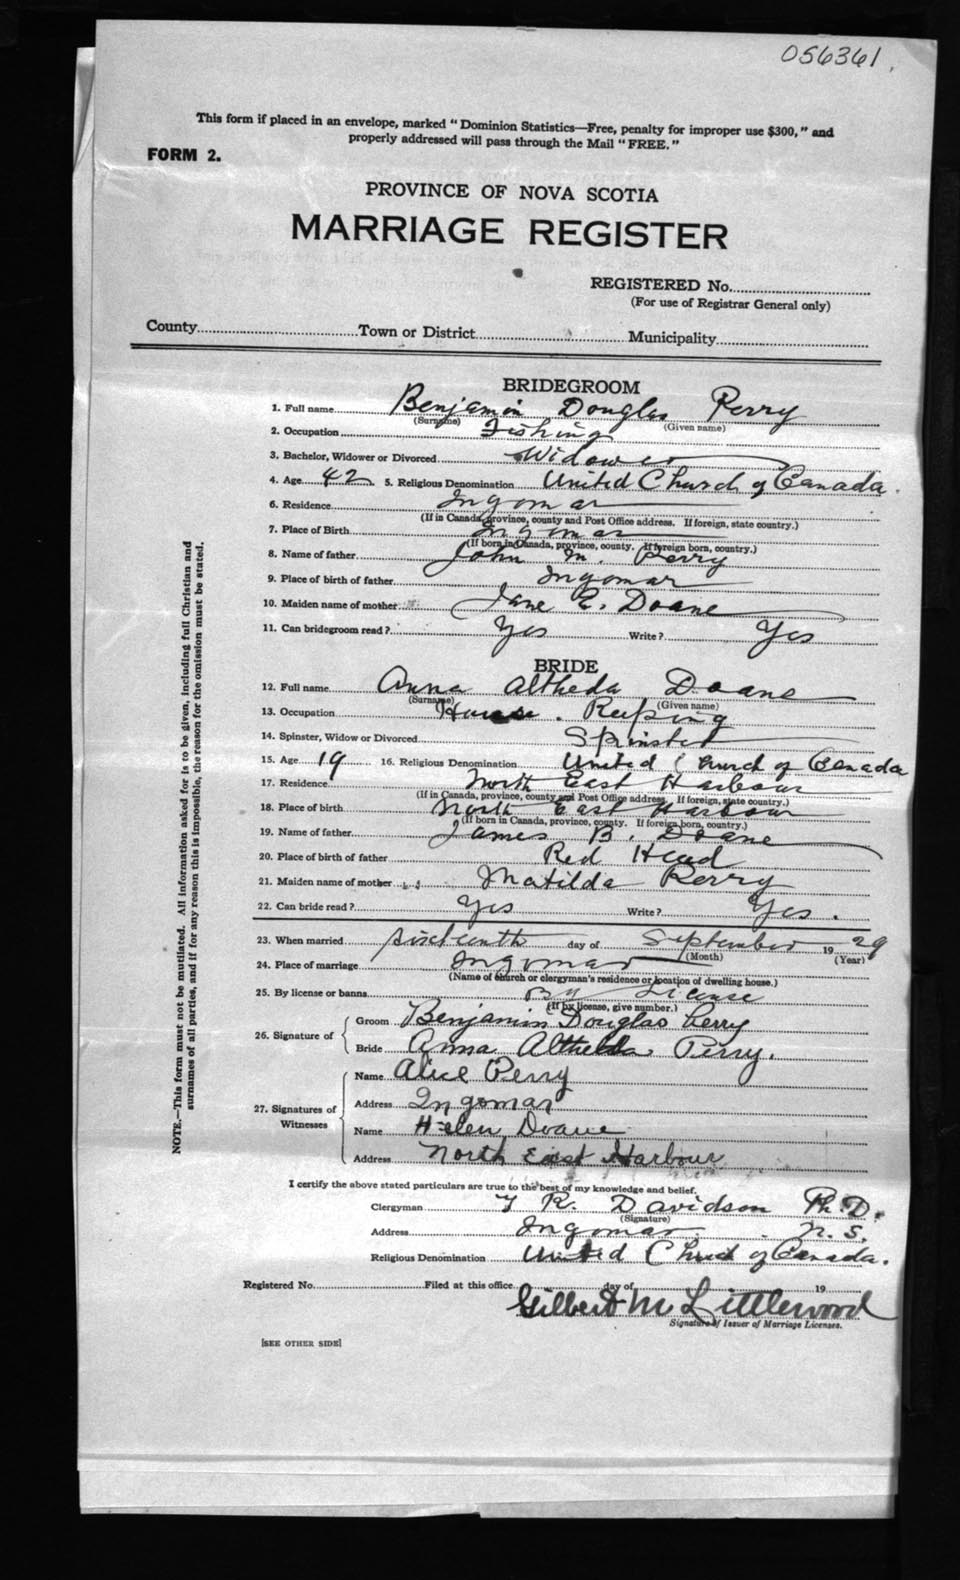 056361
This form if placed in an envelope, marked "Dominion Statistics—Free, penalty for improper use $300," and
properly addressed will pass through the Mail "FREE."
FORM 2.
PROVINCE OF NOVA SCOTIA
MARRIAGE REGISTER
REGISTERED No.
(For use of Registrar General only)
County Town or District Municipality
BRIDEGROOM
1. Full name Benjamin Douglas Perry
(Surname) (Given name)
2. Occupation Fishing
3. Bachelor, Widower or Divorced Widower
4. Age 42 5. Religious Denomination United Church of Canada.
6. Residence Ingomar
(If in Canada, province, county and Post Office address. If foreign, state country.)
7. Place of Birth Ingomar
(If born in Canada, province, county. If foreign born, country.)
8. Name of father John M. Perry
9. Place of birth of father Ingomar
10. Maiden name of mother Jane E. Doane
11. Can bridegroom read? Yes Write? Yes
BRIDE
12. Full name Anna Altheda Doane
(Surname) (Given name)
13. Occupation House Keeping
14. Spinster, Widow or Divorced Spinster
15. Age 19 16. Religious Denomination United Church of Canada
17. Residence North East Harbour
(If in Canada, province, county and Post Office address. If foreign, state country.)
18. Place of birth North East Harbour
(If born in Canada, province, county. If foreign born, country.)
19. Name of father James B. Doane
20. Place of birth of father Red Head
21. Maiden name of mother Matilda Perry
22. Can bride read? Yes Write? Yes.
23. When married sixteenth day of September 1929
(Month) (Year)
24. Place of marriage Ingomar
(Name of church or clergyman's residence or location of dwelling house.)
25. By license or banns By License
(If by license, give number.)
26. Signature of Groom Benjamin Douglas Perry
Bride Anna Altheda Perry.
27. Signatures of Witnesses Name Alice Perry
Address Ingomar
Name Helen Doane
Address North East Harbour
I certify the above stated particulars are true to the best of my knowledge and belief.
Clergyman R. Davidson Ph.D.
(Signature)
Address Ingomar N.S.
Religious Denomination United Church of Canada.
Registered No. Filed at this office day of 19
Gilbert M Littlewood
Signature of Issuer of Marriage Licenses.
[SEE OTHER SIDE]
NOTE.—This form must not be mutilated. All information asked for is to be given, including full Christian and
surnames of all parties, and if for any reason this is impossible, the reason for the omission must be stated.